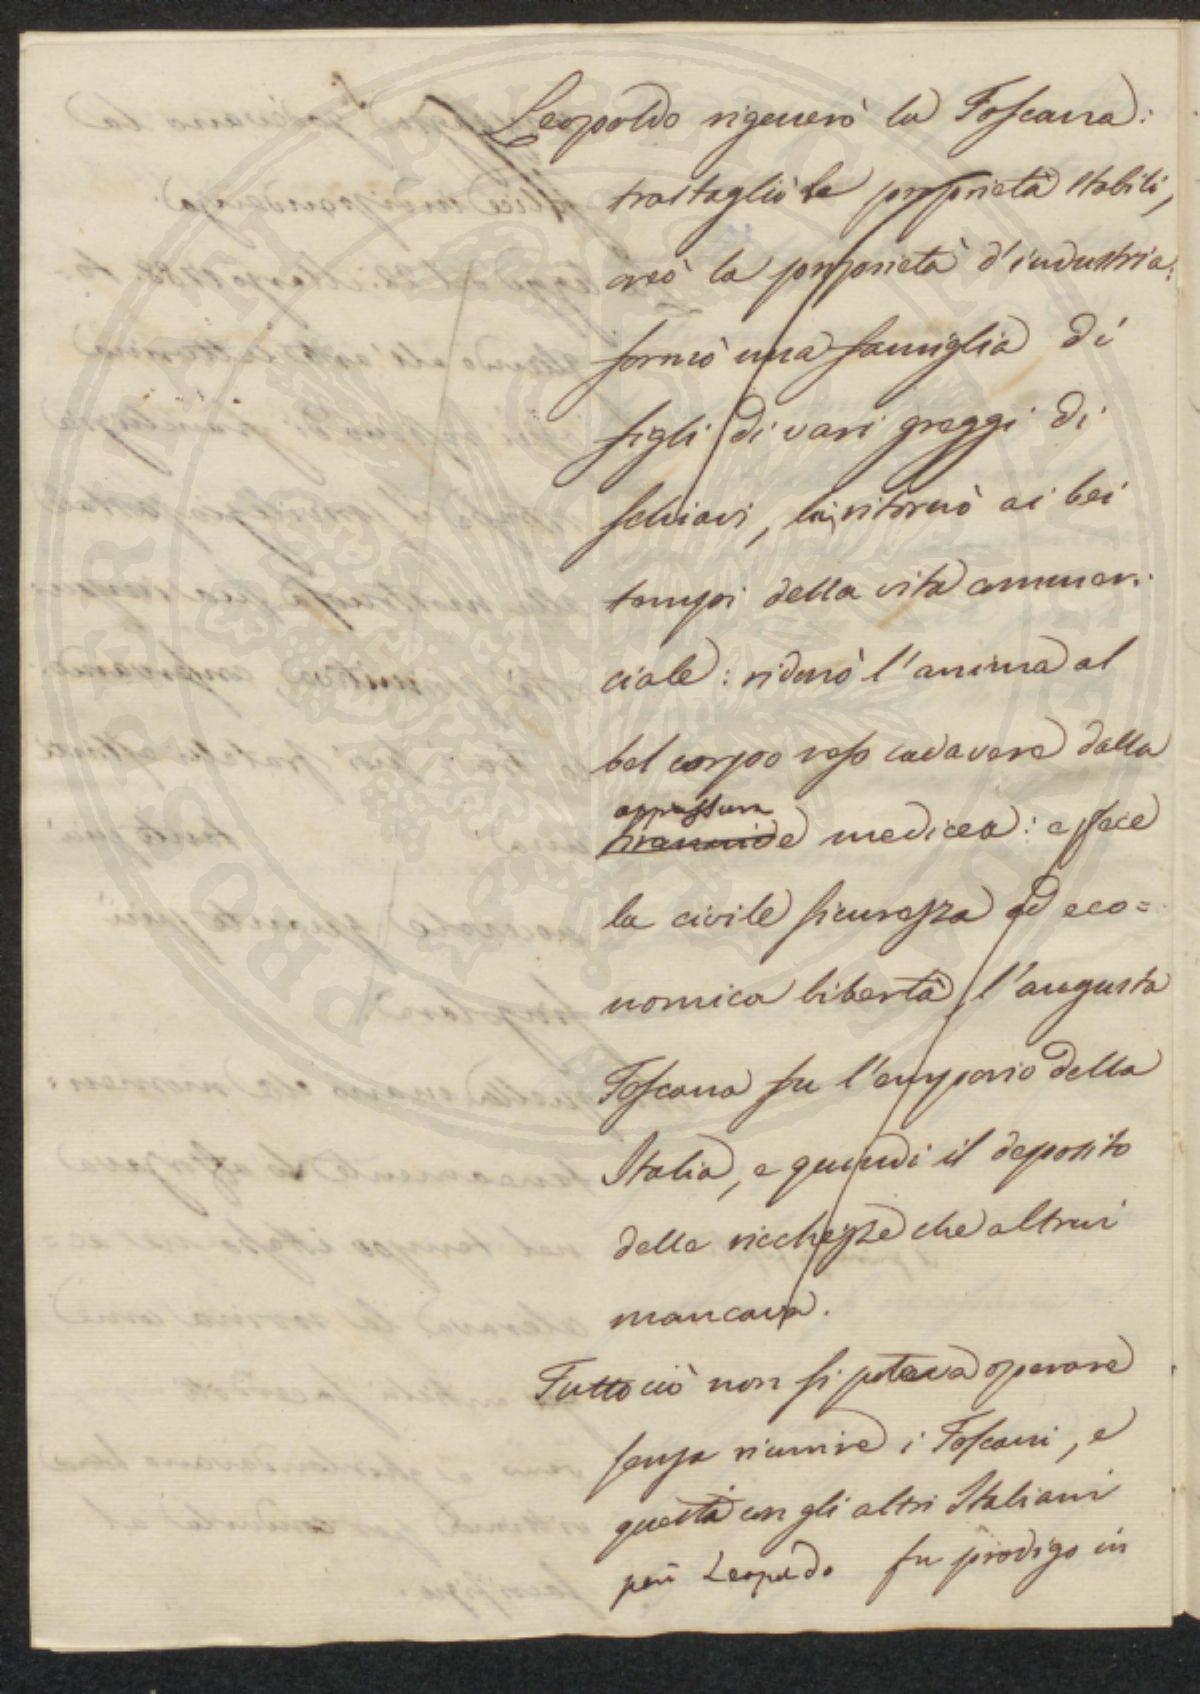 Leopoldo rigenerò la Toscana:
trastagliò le proprietà stabili,
creò la proprietà d'industria:
formò una famiglia di
figli di vari greggi di
schiavi, li ritornò ai bei
tempi della vita commer:
ciale: ridonò l'anima al
bel corpo reso cadavere dalla
oppressura
tirannide medicea: e fece
la civile sicurezza ed eco=
nomica libertà, l'augusta
Toscana fu l'emporio della
Italia, e quindi il deposito
delle ricchezze che altrui
mancava.
Tutto ciò non si poteva operare
senza riunire i Toscani, e
questi con gli altri Italiani
però Leopoldo fu prodigo in